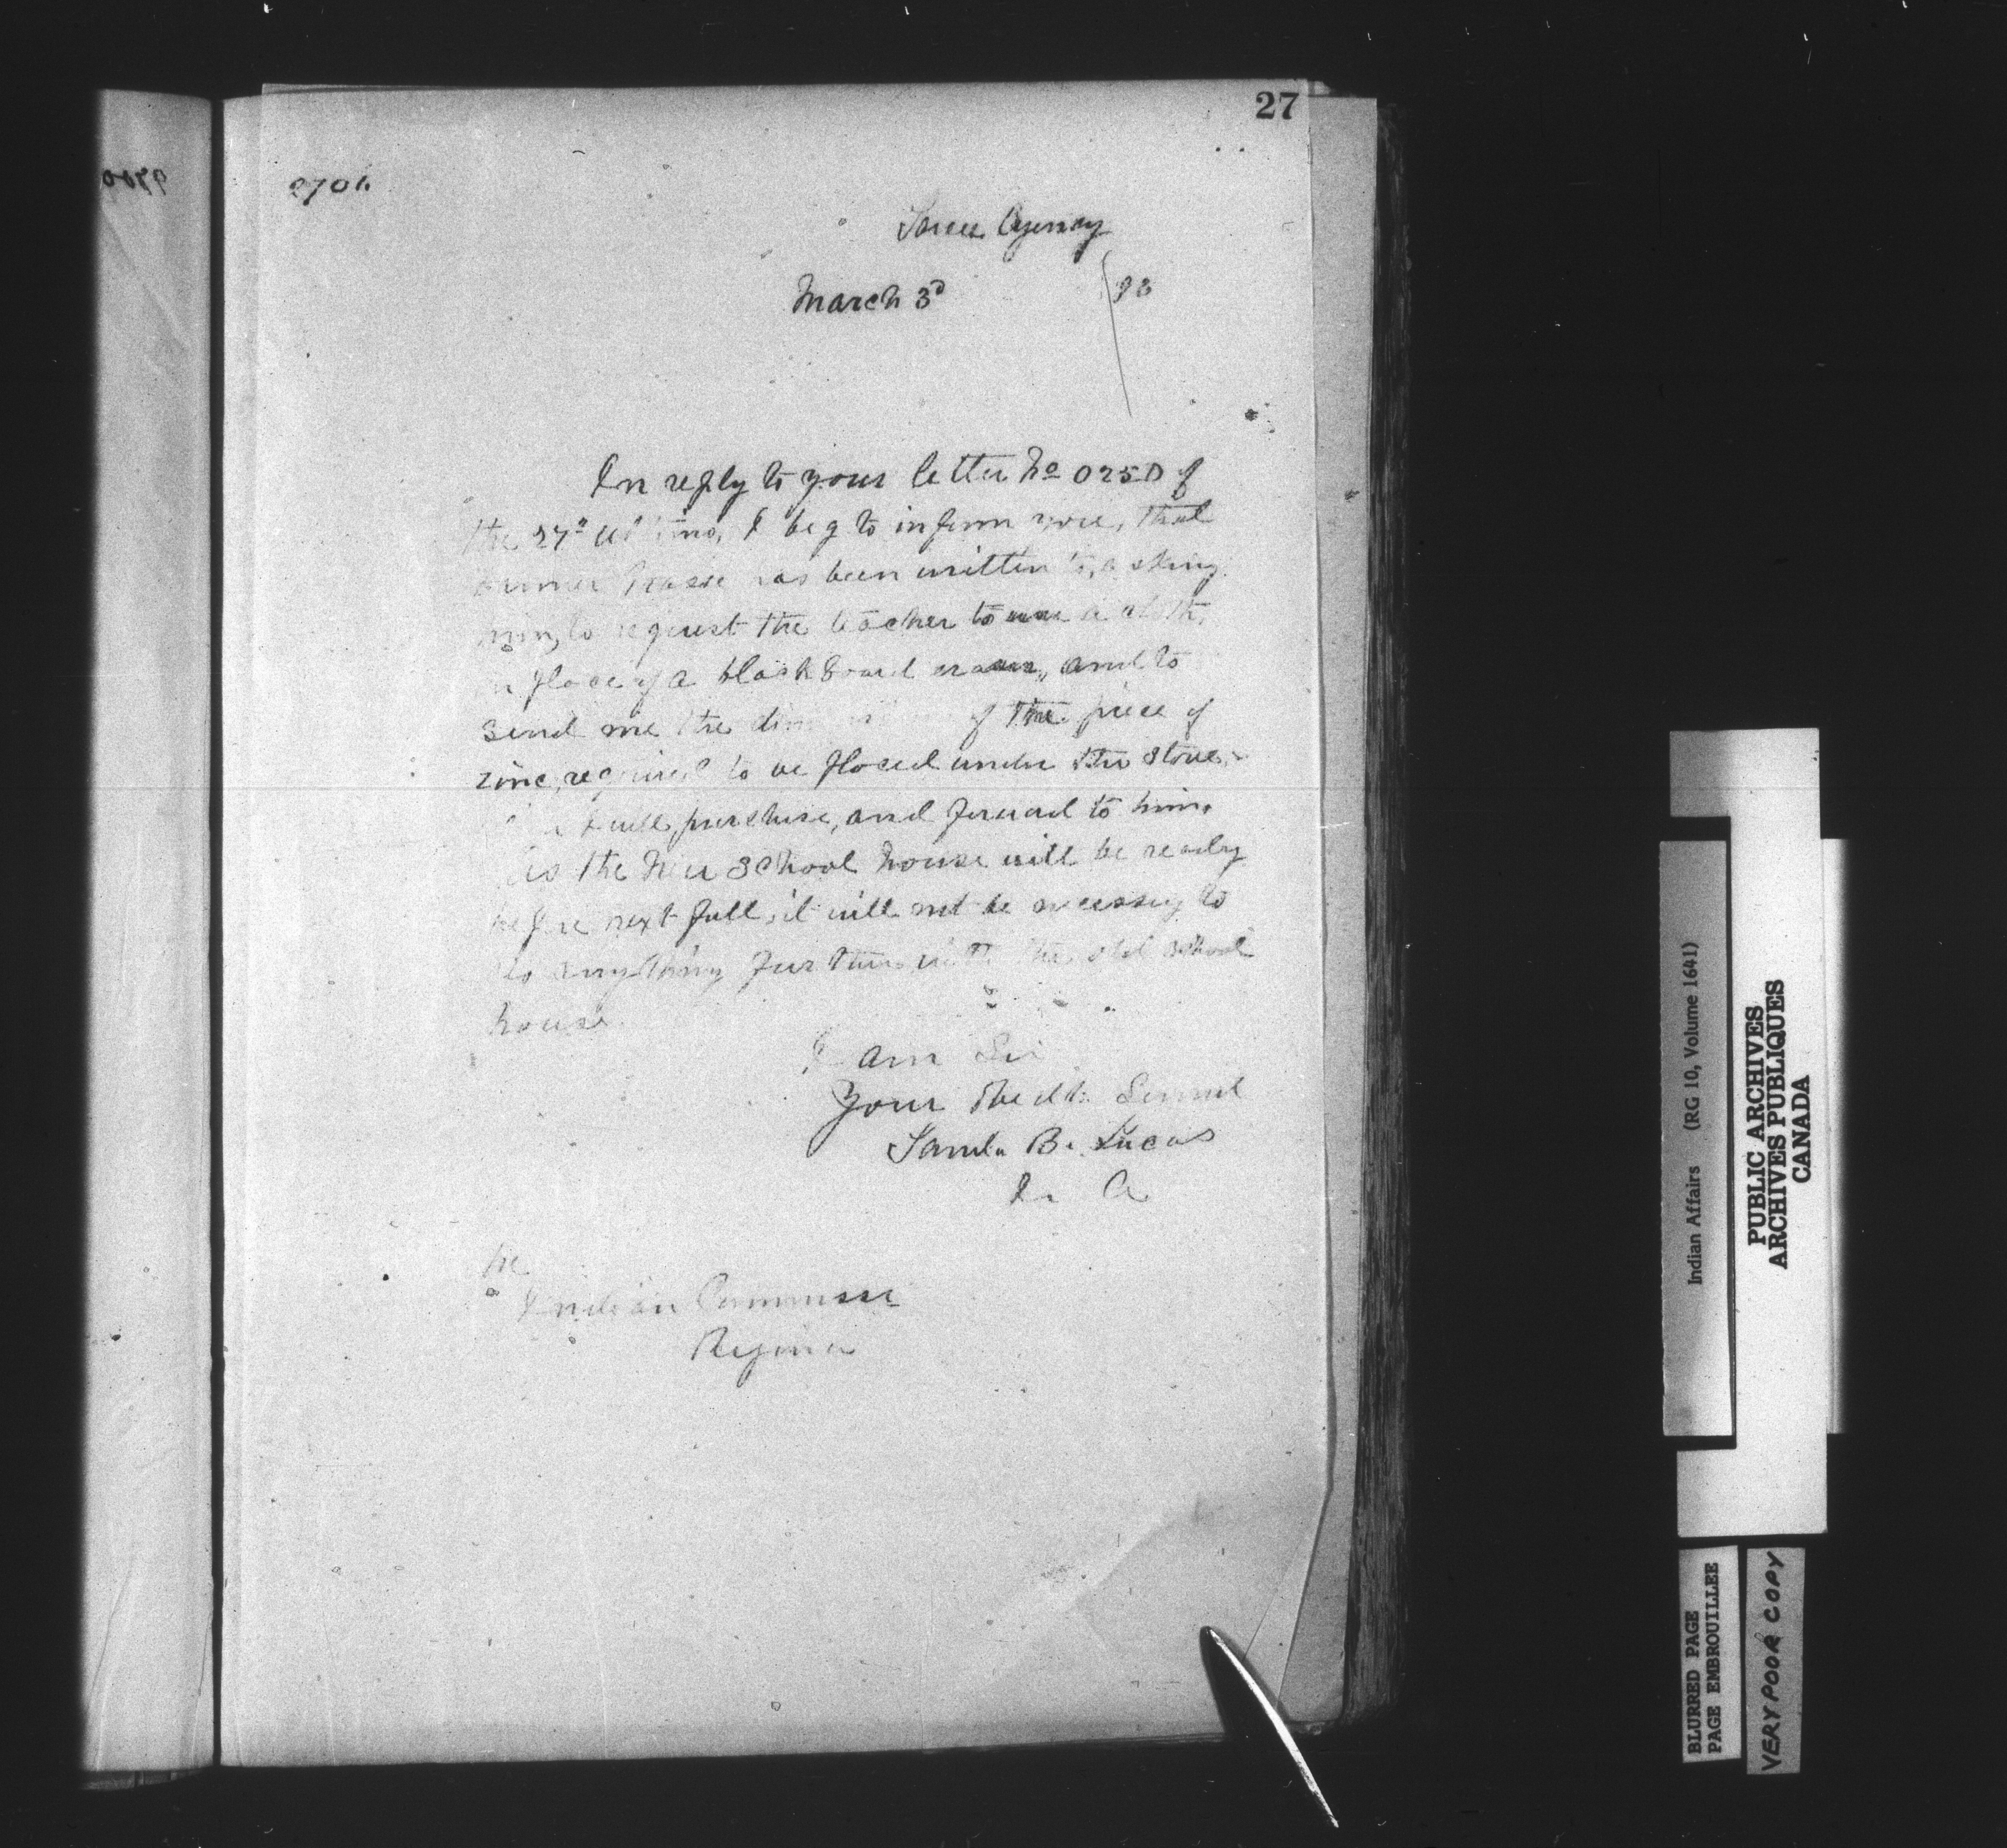 27
Sarcee Agency
March 3d /93
In reply to your letter No 0250 of
the 27th Ultimo, I beg to inform you, that
has been written to, asking
him, to request the teacher to use a cloth,
in place of a blackboard eraser, and to
send me the of the piece of
zinc, required to be placed under the stove,
I will, purchase, and forward to him.
As the New School house will be ready
before next fall, it will not be necessary to
do anything further with the old school
house
I am Sir
Your Obedt Servant
Saml. B. Lucas
I. A
The
Indian Commissr
Regina
Indian Affairs (RG 10, Volume 1641)
PUBLIC ARCHIVES
ARCHIVES PUBLIQUES
CANADA
BLURRED PAGE
PAGE EMBROUILLEE
VERY POOR COPY